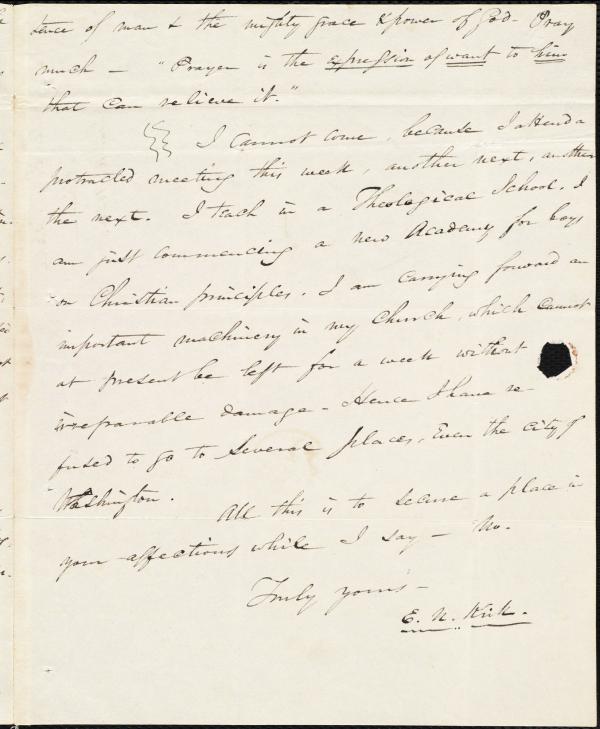 tence of man & the mighty grace & power of God - Pray
much - "Prayer is the expression of want to him
that can relieve it."
I cannot come, because I attend a
protracted meeting this week, another next, another
the next. I teach in a Theological School. I
am just commencing a new Academy for boys
on Christian principles. I am carrying forward an
important machinery in my church, which cannot
at present be left for a week without
irreparable damage - Hence I have re-
fused to go to several places, even the city of
Washington.
All this is to secure a place in
your affections while I say - No.
Truly yours -
E. N. Kirk.